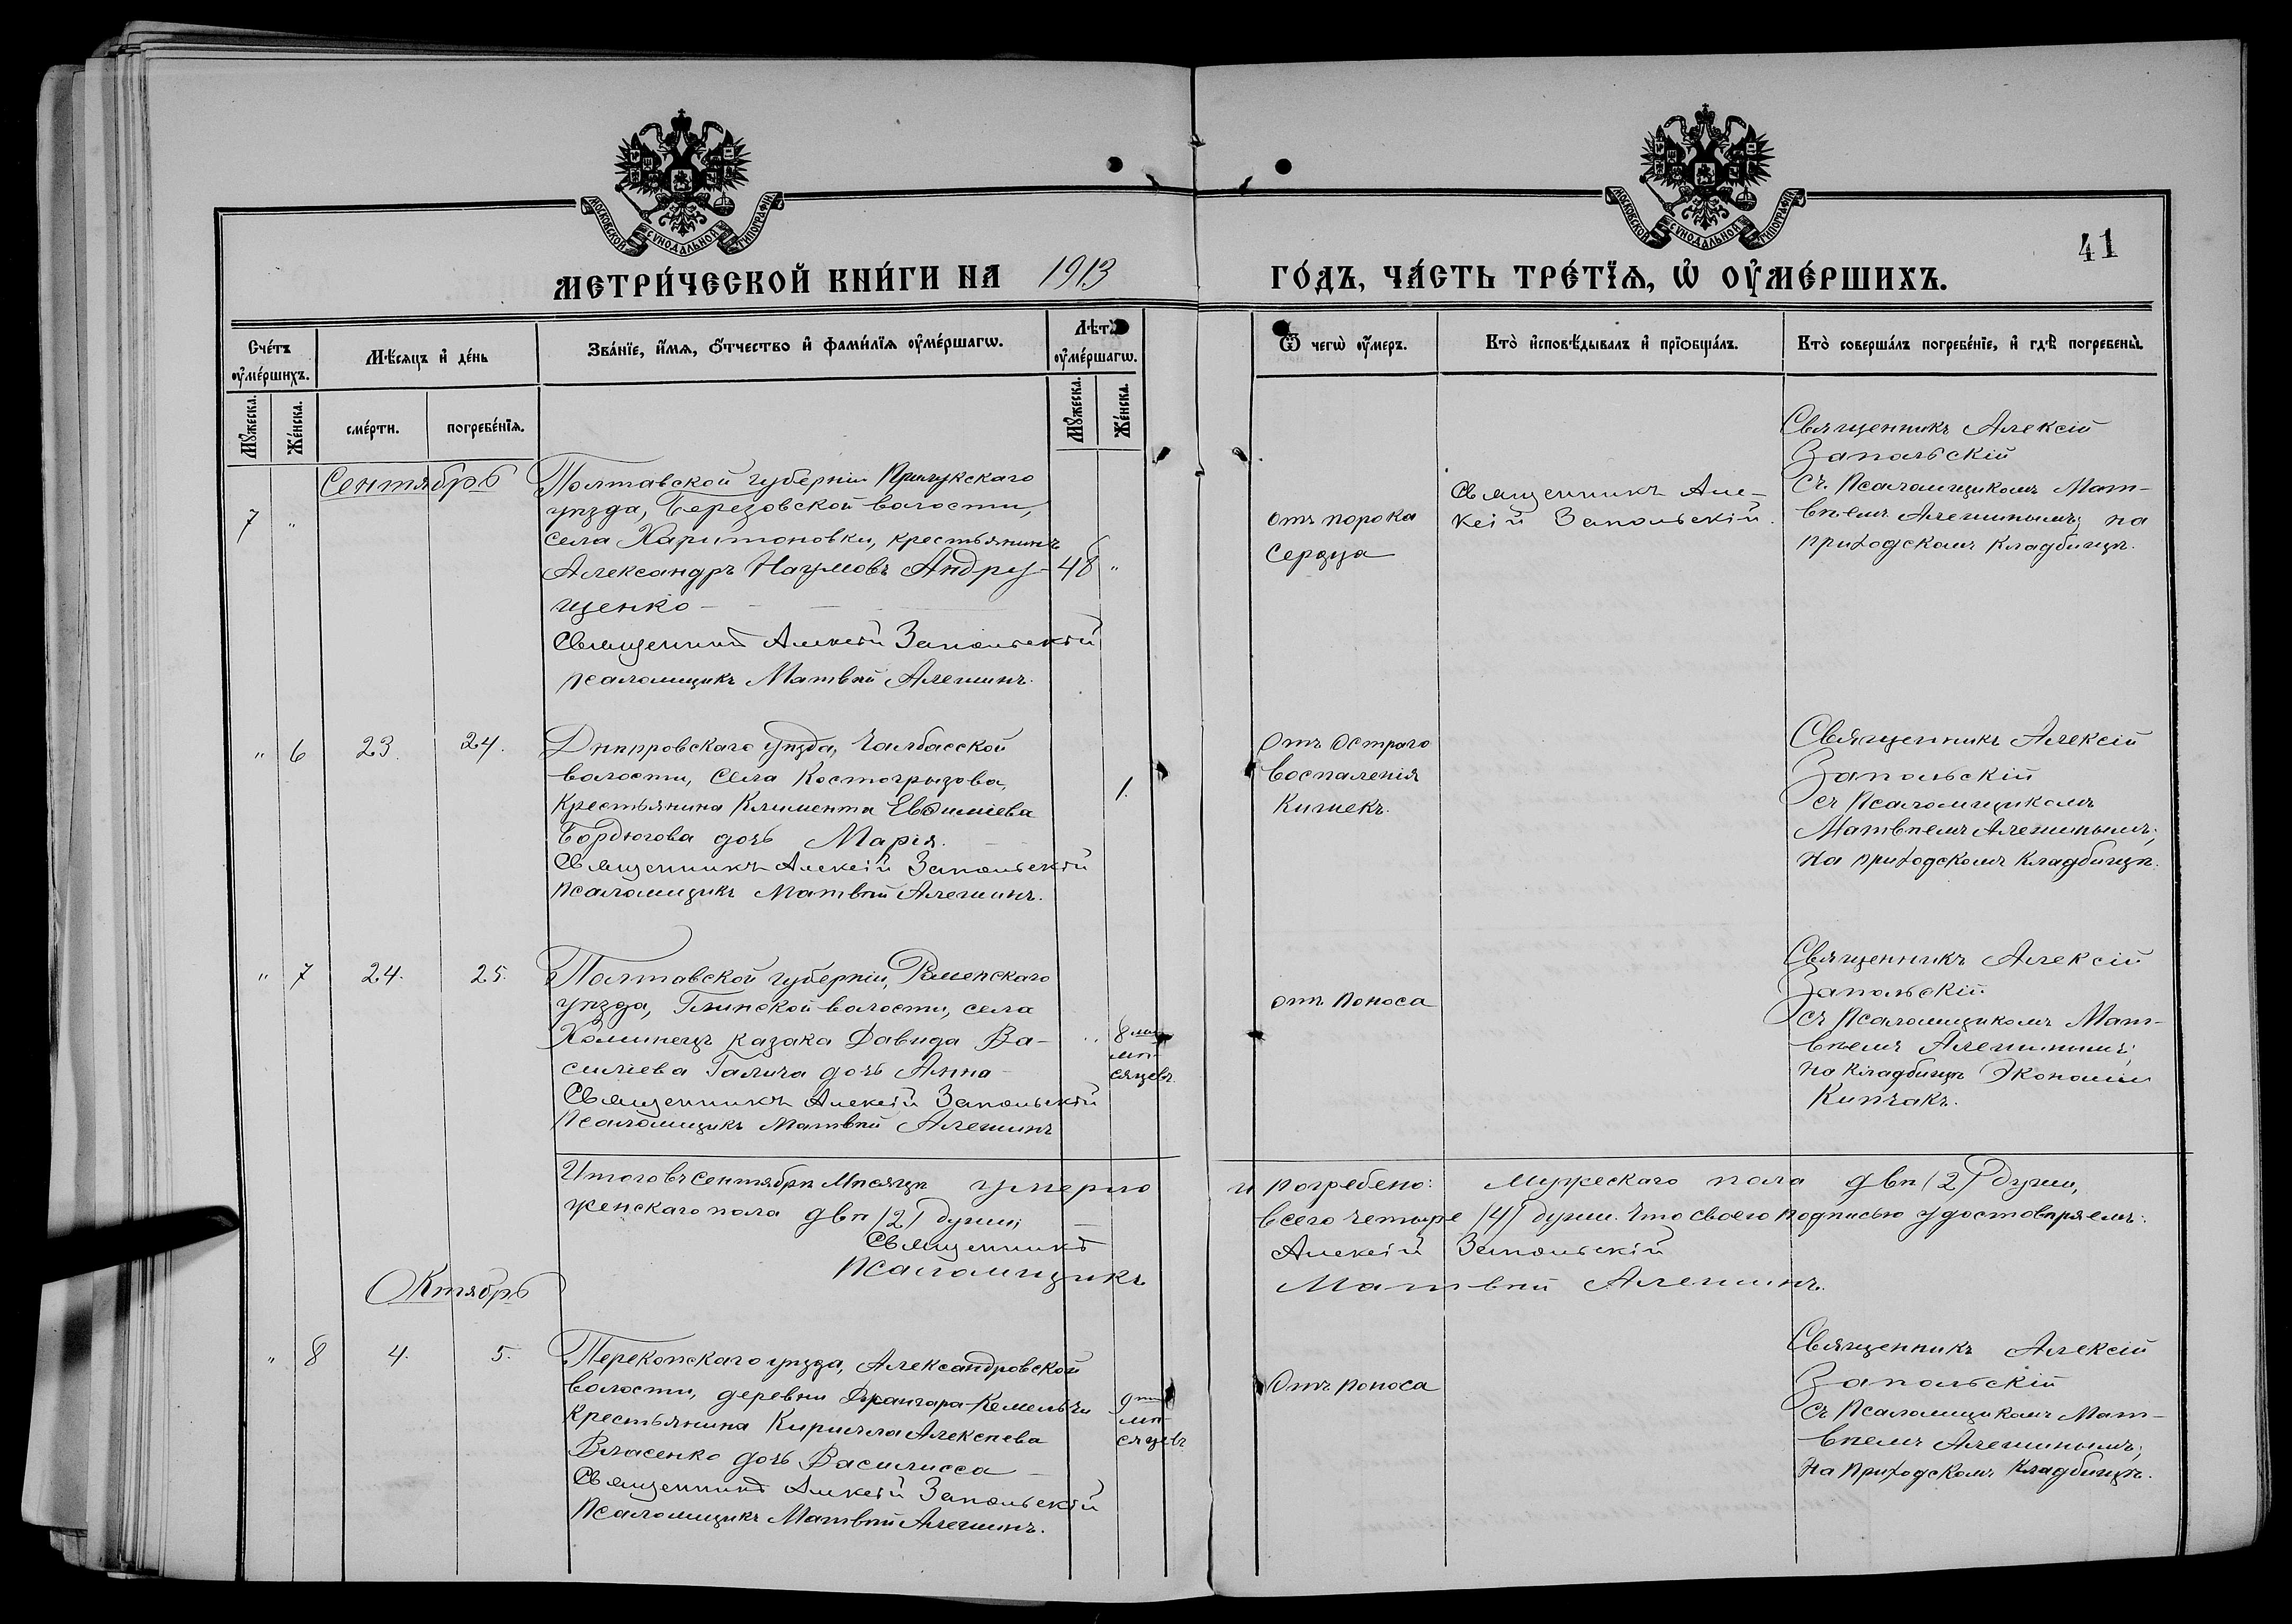 МОСКОВСКОЙ СѴНОДАЛЬНОЙ ТИПОГРАФІИ
МОСКОВСКОЙ СѴНОДАЛЬНОЙ ТИПОГРАФІИ
41
МЕТРИ́ЧЕСКОЙ КНИ́ГИ НА 1913
ГО́ДЪ, ЧА́СТЬ ТРЕ́ТЇѦ, Ѡ҆ ОУ҆МЕ́РШИХЪ.
Сче́тъ оу҆ме́ршихъ.
Мѣ́сяцъ и҆ де́нь
Зва́нїе, и҆́мѧ, ѻ҆́тчество и҆ фами́лїѧ оу҆ме́ршагѡ.
Лѣ́тъ оу҆ме́ршагѡ.
Ѿ чегѡ̀ оу҆́меръ.
Кто̀ и҆сповѣ́дывалъ и҆ прїѡбща́лъ.
Кто̀ соверша́лъ погребе́нїе, и҆ гдѣ̀ погребены̀.
Мꙋ́жеска.
Же́нска.
сме́рти.
погребе́нїѧ.
Мꙋ́жеска.
Же́нска.
Сентябрь
7 "
Полтавской губерніи Прилукскаго
уѣзда, Березовской волости,
села Харитоновки, крестьянинъ
Александръ Наумовъ Андру-
щенко
48 "
Священникъ Алексій Запольскій
Псаломщикъ Матвѣй Алешинъ.
отъ порока
сердца
Священникъ Але-
ксій Запольскій.
Священникъ Алексій
Запольскій
съ Псаломщикомъ Мат-
вѣемъ Алешинымъ; на
приходскомъ кладбищѣ.
" 6 23. 24.
Днѣпровскаго уѣзда, Чалбасской
волости, села Костогрызова,
крестьянина Климента Евѳиміева
Бордюгова дочь Марія.
1.
Священникъ Алексій Запольскій
Псаломщикъ Матвѣй Алешинъ.
Отъ остраго
воспаленія
кишекъ.
Священникъ Алексій
Запольскій
съ Псаломщикомъ
Матвѣемъ Алешинымъ;
на приходскомъ кладбищѣ.
" 7 24. 25.
Полтавской губерніи, Роменскаго
уѣзда, Глинской волости, села
Хоминецъ казака Давида Ва-
силіева Галича дочь Анна
" 8ми
мѣ-
сяцевъ
Священникъ Алексій Запольскій
Псаломщикъ Матвѣй Алешинъ
отъ поноса
Священникъ Алексій
Запольскій
съ Псаломщикомъ Мат-
вѣемъ Алешинымъ;
на кладбищѣ Экономіи
Кипчакъ.
Итого въ Сентябрѣ Мѣсяцѣ умерло и погребено: мужескаго пола двѣ /2/ души,
женскаго пола двѣ /2/ души; всего четыре /4/ души. Что своею подписью удостовѣряемъ:
Священникъ Алексій Запольскій
Псаломщикъ Матвѣй Алешинъ.
Октябрь
" 8 4. 5.
Перекопскаго уѣзда, Александровской
волости, деревни
крестьянина Кирилла Алексѣева
Власенко дочь Василисса
9ти
мѣ-
сяцевъ
Священникъ Алексій Запольскій
Псаломщикъ Матвѣй Алешинъ.
Отъ поноса
Священникъ Алексій
Запольскій
съ Псаломщикомъ Мат-
вѣемъ Алешинымъ;
на приходскомъ кладбищѣ.